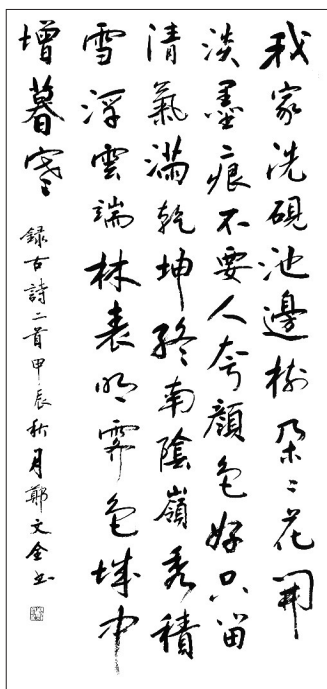 我家洗硯池邊樹朶〻花開
淡墨痕不要人夸顏色好只留
清氣滿乾坤終南陰嶺秀積
雪浮雲端林表明霽色城中
增暮寒
録古詩二首甲辰秋月鄭文全书